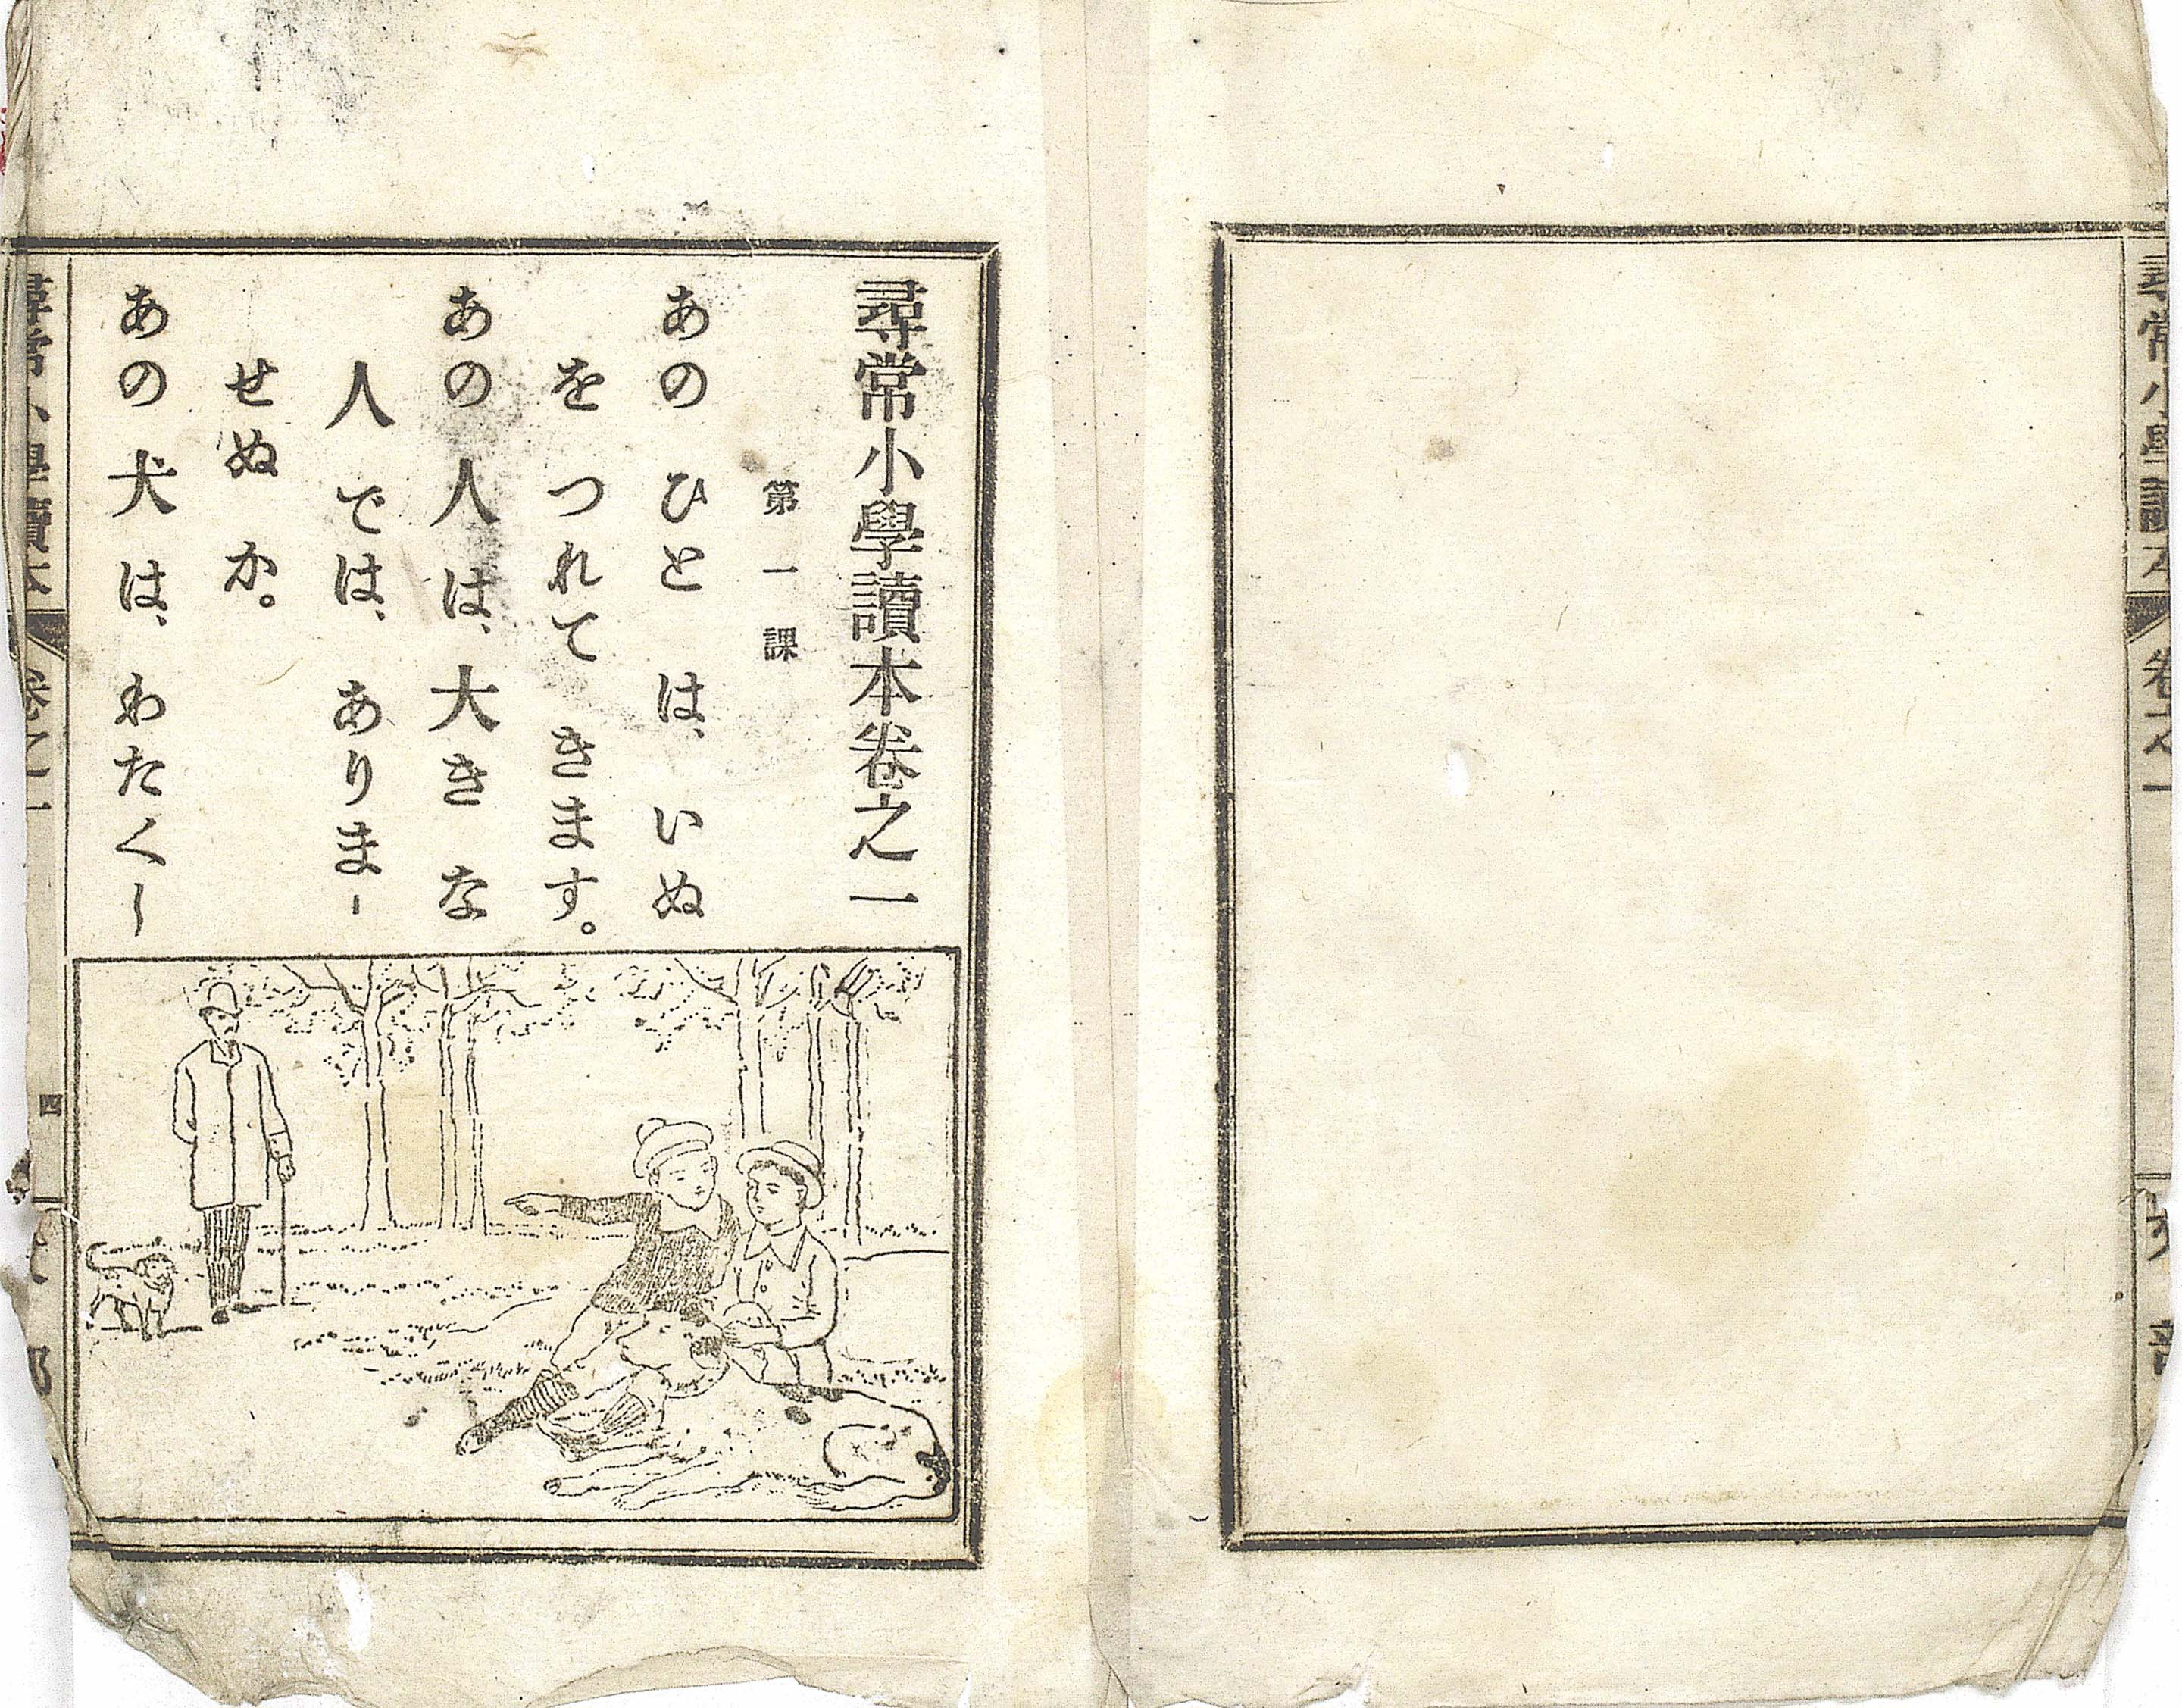 尋常小學讀本卷之一
第一課
あの ひと は、いぬ
を つれて きます。
あの 人 は、大き な
人 では、ありま-
せぬ か。
あの 犬 は、わたくし
尋常小學讀本
卷之一
四
尋常小學讀本
卷之一